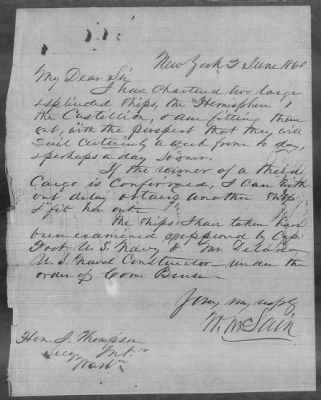 New York 2 June 1860
My Dear Sir
I have Chartered two large
& splendid Ships, the "Hemisphere" &
the Castillian, & am fitting them
out, with the prospect that they will
sail certainly a week from to day,
& perhaps a day sooner.
If the rumor of a third
Cargo is Confirmed, I can with
out delay obtain another ship
& fit her out.
The ships I have taken has
been examined & approved by Cap.
Foot U.S. Navy & Mr.
U.S. Naval Constructor under the
order of Com
Your
W. McLain
Hon. J. Thompson
Secy Int.
Washn